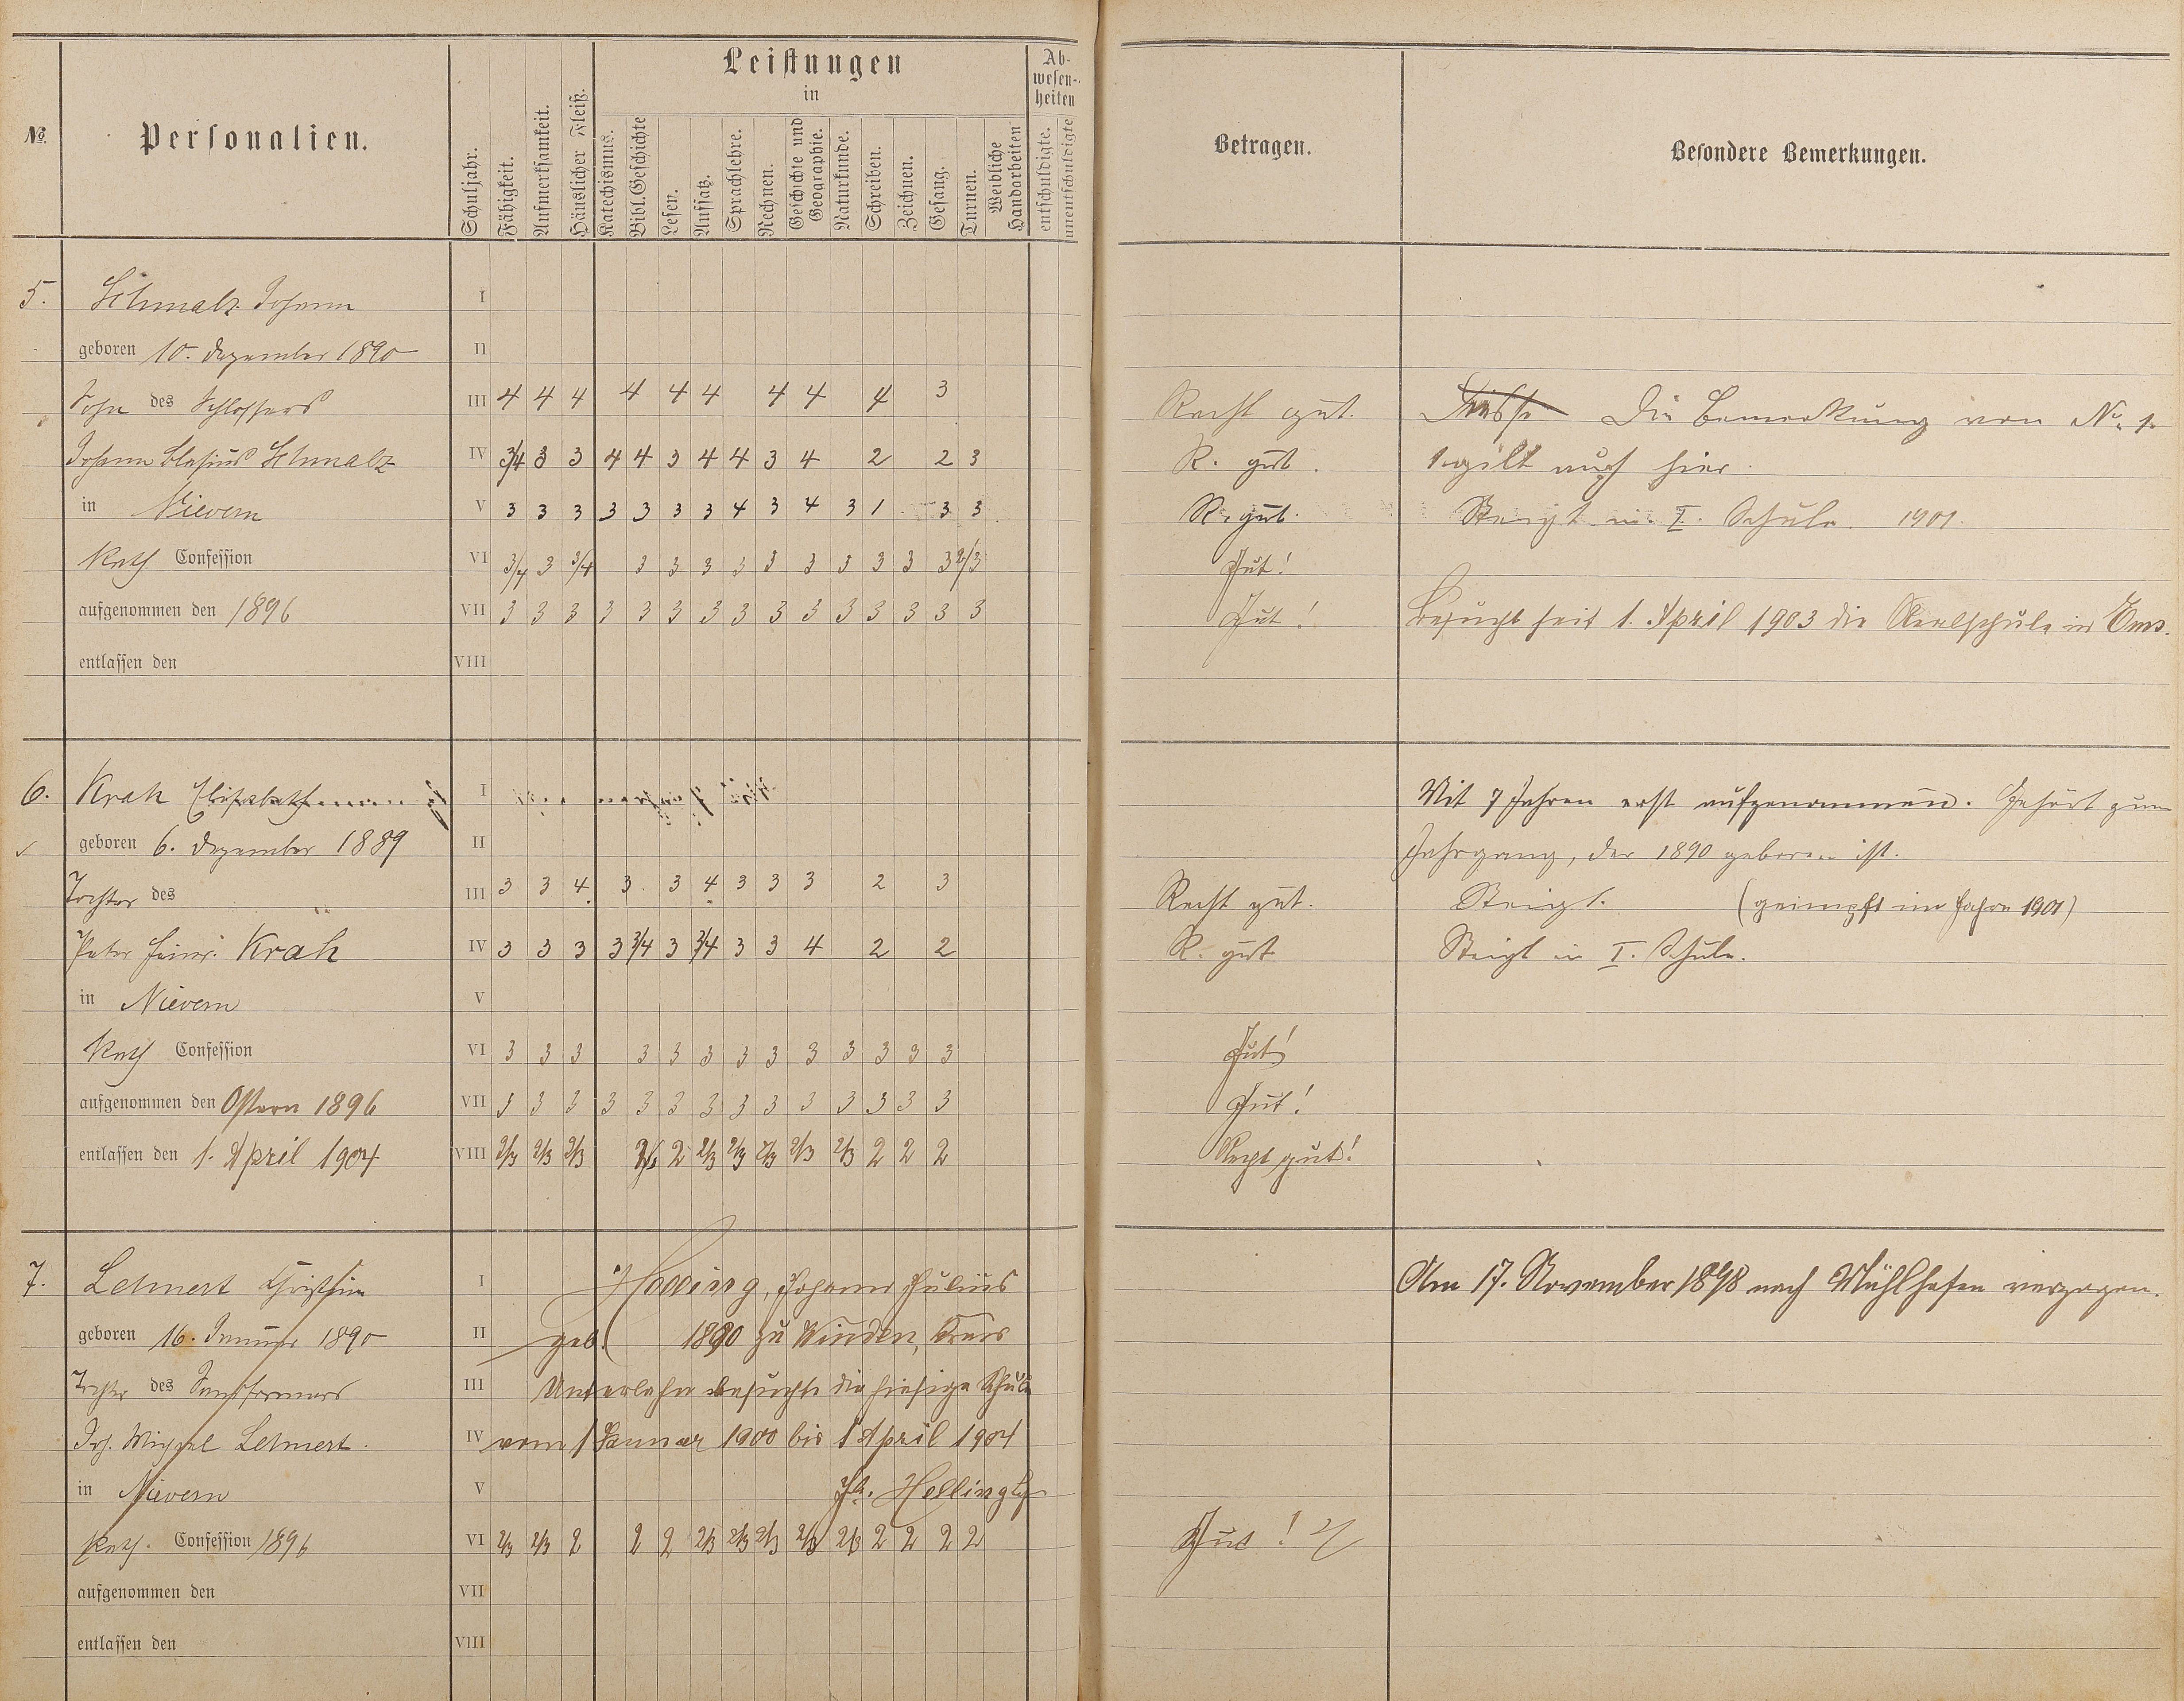 No. Personalien. Schuljahr. Fähigkeit. Aufmerksamkeit. Häuslicher Fleiß. Leistungen in Katechismus. Bibl. Geschichte Lesen. Aufsatz. Sprachlehre. Rechnen. Geschichte und Geographie. Naturkunde. Schreiben. Zeichnen. Gesang. Turnen. Weibliche Handarbeiten Ab-wesen-heiten entschuldigte. unentschuldigte Betragen. Besondere Bemerkungen.
5. Schmalz Johann I
geboren 10. Dezember 1890 II
Sohn des Schlossers III 4 4 4 4 4 4 4 4 4 3 Recht gut. Die Bemerkung von No. 1.
Johann Blasius Schmalz IV 3/4 3 3 4 4 3 4 4 3 4 2 2 3 R. gut. gilt auch hier.
in Nievern V 3 3 3 3 3 3 3 4 3 4 3 1 3 3 R. gut. Steigt in I. Schule. 1901.
Kath Confession VI 3/4 3 3/4 3 3 3 3 3 3 3 3 3 3 2/3 Gut!
aufgenommen den 1896 VII 3 3 3 3 3 3 3 3 3 3 3 3 3 3 3 Gut! Besucht seit 1. April 1903 die Realschule in Ems.
entlassen den VIII
6. Krah Elisabeth I Mit 7 Jahren erst aufgenommen. Gehört zum
geboren 6. Dezember 1889 II Jahrgang, der 1890 geboren ist.
Tochter des III 3 3 4 3 3 4 3 3 3 2 3 Recht gut. Steigt. (geimpft im Jahre 1901)
Peter Heinr. Krah IV 3 3 3 3 3/4 3 3/4 3 3 4 2 2 R. gut Steigt in I. Schule.
in Nievern V
Kath Confession VI 3 3 3 3 3 3 3 3 3 3 3 3 3 Gut!
aufgenommen den Ostern 1896 VII 3 3 3 3 3 3 3 3 3 3 3 3 3 3 Gut!
entlassen den 1. April 1904 VIII 2/3 2/3 2/3 2 2/3 2/3 2/3 2/3 2/3 2 2 2 Recht gut!
7. Lehnert Christina I Johann Julius Am 17. November 1898 nach Mühlhofen verzogen.
geboren 16. Januar 1890 II geb. 1890 zu Winden, Kreis
Tochter des Sandformers III Unterlahn besuchte die hiesige Schule
Joh. Michael Lehnert. IV vom 1 Januar 1900 bis 1 April 1904
in Nievern V Hellingh
Kath. Confession 1896 VI 2/3 2/3 2 2 2 2/3 2/3 2/3 2/3 2/3 2 2 2 2 Gut!
aufgenommen den VII
entlassen den VIII